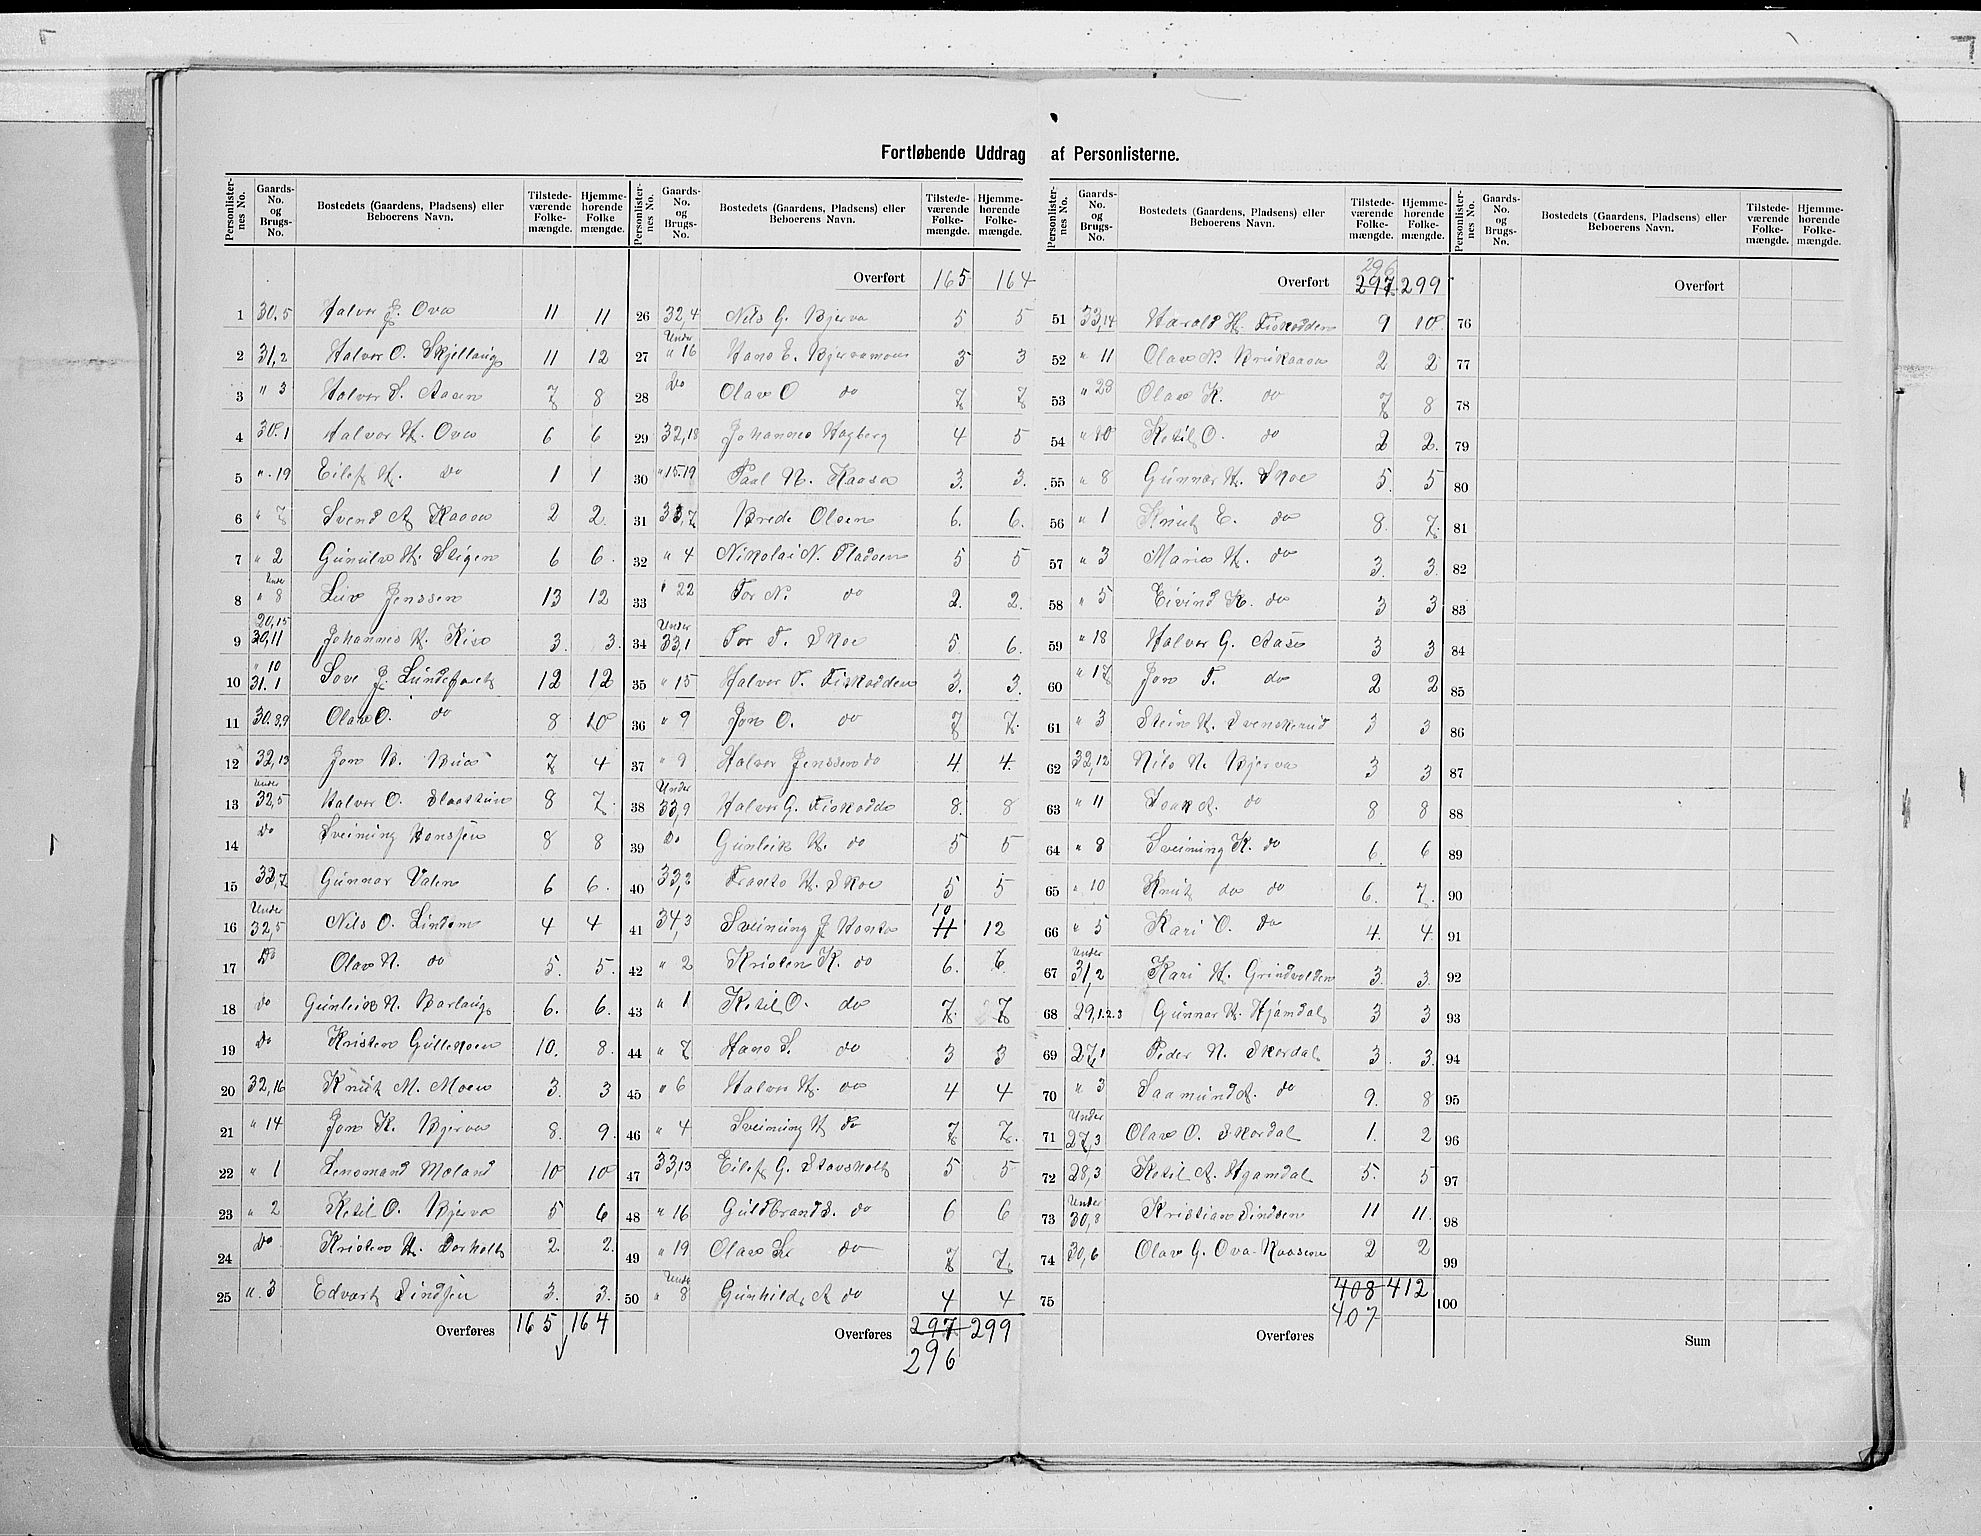 Fortløbende Uddrag af Personlisterne.
Personlister-nes No. Gaards-No. og Brugs-No. Bostedets (Gaardens, Pladsens) eller Beboerens Navn. Tilstede-værende Folke-mængde. Hjemme-hørende Folke mængde.
1 30.5 Halvor J. Ova 11 11
2 31,2 Halvor O. Skjellaug 11 12
3 " 3 Halvor S. Aasen 7 8
4 30.1 Halvor H. Ova 6 6
5 ". 19 Eilef H. Do 1 1
6 " 7 Svend A Kaasa 2 2.
7 " 2 Gunula H. Stigen 6 6.
8 Under " 8 Liv Jenssen 13 12
9 20,15 30,11 Johannes H. Kise 3. 3.
10 " 10 31.1 Tove J. Lundefaret 12 12
11 30.8,9 Olav O. do 8 10
12 32,13 Jon N. Bues 7 4
13 Under 32,5 Halvor O. Slaattun 8 7.
14 Do Sveinung Hanssen 8 8
15 32,7 Gunnar Valen 6 6.
16 Under 32,5 Nils O. Lindem 4 4
17 Do Olav N. do 5. 5.
18 do Gunleik N. Barlaug 6. 6.
19 Do Kristen Gullekaasen 10. 8.
20 32,16 Knut M. Moen 3. 3
21 " 14 Jon K. Bjerva 8. 9.
22 " 1 Lensmand Mæland 10 10
23 " 2 Ketil O. Bjerva 5 6
24 Do Kristen H. Borholt 2. 2.
25 ". 3 Edvart Lindsen 3. 3.
Overføres 165 164
Personlister-nes No. Gaards-No. og Brugs-No. Bostedets (Gaardens, Pladsens) eller Beboerens Navn. Tilstede-værende Folke-mængde. Hjemme-hørende Folke-mængde.
Overført 165 164
26 32,4 Nils G. Bjerva 5 5
27 Under " 16 Hans E. Bjervamoen 3 3
28 Do Olav O do 7 7
29 32,18 Johannes Hagberg 4 5
30 " 15.19 Paal N. Kaasa 3. 3.
31 33,7 Brede Olsen 6. 6.
32 " 4 Nikolai N. Pladsen 5 5
33 " 22 Tor N. do 2. 2.
34 Under 33,1 Tor T. Skoe 5 6.
35 " 15 Halvor T. Fiskodden 3. 3.
36 " 9 Jon O. do 7 7.
37 " 9 Halvor Jenssen do 4. 4.
38 Under 33,9 Halvor G. Fiskodde 8. 8
39 Do Gunleik H. do 5 5
40 33,2 Frants H. Skoe 5 5
41 34,3 Sveinung J Honto 10 11 12
42 " 2 Kristen K. do 6. 6
43 " 1 Ketil O. do 7. 7
44 " 7 Hans S. do 3 3
45 " 6 Halvor H. do 4 4
46 " 4 Sveinung H do 7 7.
47 33,13 Eilef G. Stavsholt 5 5
48 " 16 Guldbrand S. do 6 6
49 " 19 Olav do 7 7.
50 Under " 8 Gunhild A do 4 4
Overføres 297 299
296
Personlister-nes No. Gaards-No. og Brugs-No. Bostedets (Gaardens, Pladsens) eller Beboerens Navn. Tilstede-værende Folke-mængde. Hjemme-hørende Folke-mængde.
296
Overført 297 299
51 33,14 Harold H. Fiskodden 9 10.
52 " 11 Olav N. Brukaasa 2 2
53 " 23 Olav K. do 7 8
54 " 10 Ketil O. do 2 2.
55 " 8 Gunnar H. Skoe 5. 5
56 " 1 Knut E. do 8. 7.
57 " 3 Maria H. do 3. 3.
58 " 5 Eivind K. do 3 3
59 " 18 Halvor G. Aase 3 3
60 " 17 Jon T. do 2 2
61 " 3 Stein H. Svenskerud 3 3
62 32,12 Nils N. Bjerva 3 3
63 " 11 Isak A. do 8 8
64 " 8 Sveinung K. do 6. 6
65 " 10 Knut do do 6. 7.
66 " 5 Kari O. do 4. 4.
67 Under 31,2 Kari H. Grindvolden 3. 3.
68 29,1.2.3 Gunnar H. Hjamdal 3 3
69 27,1 Peder N. Skordal 3. 3.
70 " 3 Saamund A. do 9. 8
71 Under 27,3 Olav O. Skordal 1. 2
72 28,3 Ketil A. Hjamdal 5. 5
73 Under 30,8 Kristian Lindsen 11 11.
74 30,6 Olav G. Ova-Kaasene 2 2
75 408 412
407
Overføres
Personlister-nes No. Gaards-No. og Brugs-No. Bostedets (Gaardens, Pladsens) eller Beboerens Navn. Tilstede-værende Folke-mængde. Hjemme-hørende Folke-mængde.
Overført
76
77
78
79
80
81
82
83
84
85
86
87
88
89
90
91
92
93
94
95
96
97
98
99
100
Sum